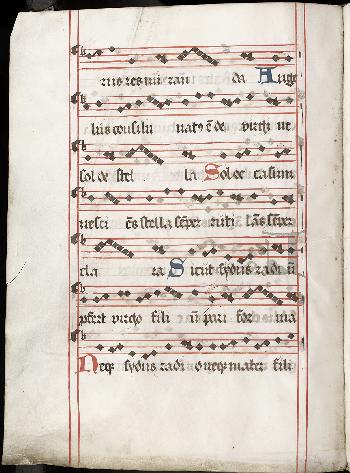 rus res miran da Ange
lus consilii natꝰ ē de virgi ne
sol de stel la Sol oc casum
nesci ēs stella sēper ruti lās sēper
cla ra Sicut sydus radi ū
pfert virgo fili ū pari for ma
Neqꝫ sydus radi o neqꝫ mater fili